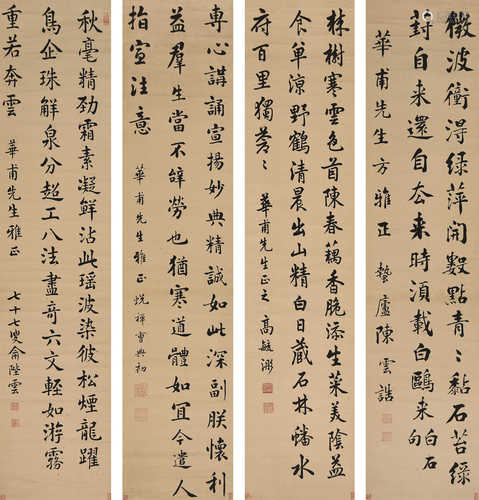 微波衝得綠萍開數點青〻黏石苔綠
葑自来還自去来時須載白鷗来 白石句
華甫先生方雅正 蟄廬陳雲誥
株樹寒雲色茵陳春藕香脆添生菜美陰益
食單涼野鶴清晨出山精白日藏石林蟠水
府百里獨蒼〻 華甫先生正之 高毓浵
專心講誦宣揚妙典精誠如此深副朕懷利
益羣生當不辭勞也猶寒道體如宜今遣人
指宣往意 華甫先生雅正 悦禪曹典初
秋毫精勁霜素凝鮮沾此瑶波染彼松煙龍躍
鳥企珠解泉分超工八法盡奇六文輕如游霧
重若奔雲 華甫先生雅正 七十七叟俞陛雲